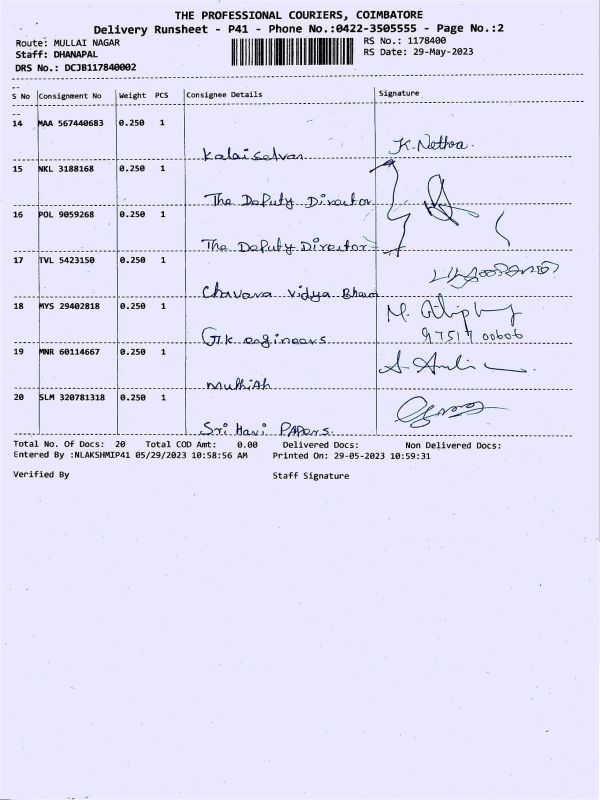 THE PROFESSIONAL COURIERS, COIMBATORE
Delivery Runsheet - P41 - Phone No.:0422-3505555 - Page No.:2
Route: MULLAI NAGAR RS No.: 1178400
Staff: DHANAPAL RS Date: 29-May-2023
DRS No.: DCJB117840002
S No Consignment No Weight PCS Consignee Details Signature
14 MAA 567440683 0.250 1 K. Nethra.
Kalaiselvan
15 NKL 3188168 0.250 1
The Deputy Director
16 POL 9059268 0.250 1
The Deputy Director
17 TVL 5423150 0.250 1
Chavara Vidya Bhava
18 MYS 29402818 0.250 1 M.
G.K. engineers 97517 00606
19 MNR 60114667 0.250 1
Muthiah
20 SLM 320781318 0.250 1
Sri Hari Papers.
Total No. Of Docs: 20 Total COD Amt: 0.00 Delivered Docs: Non Delivered Docs:
Entered By :NLAKSHMIP41 05/29/2023 10:58:56 AM Printed On: 29-05-2023 10:59:31
Verified By Staff Signature